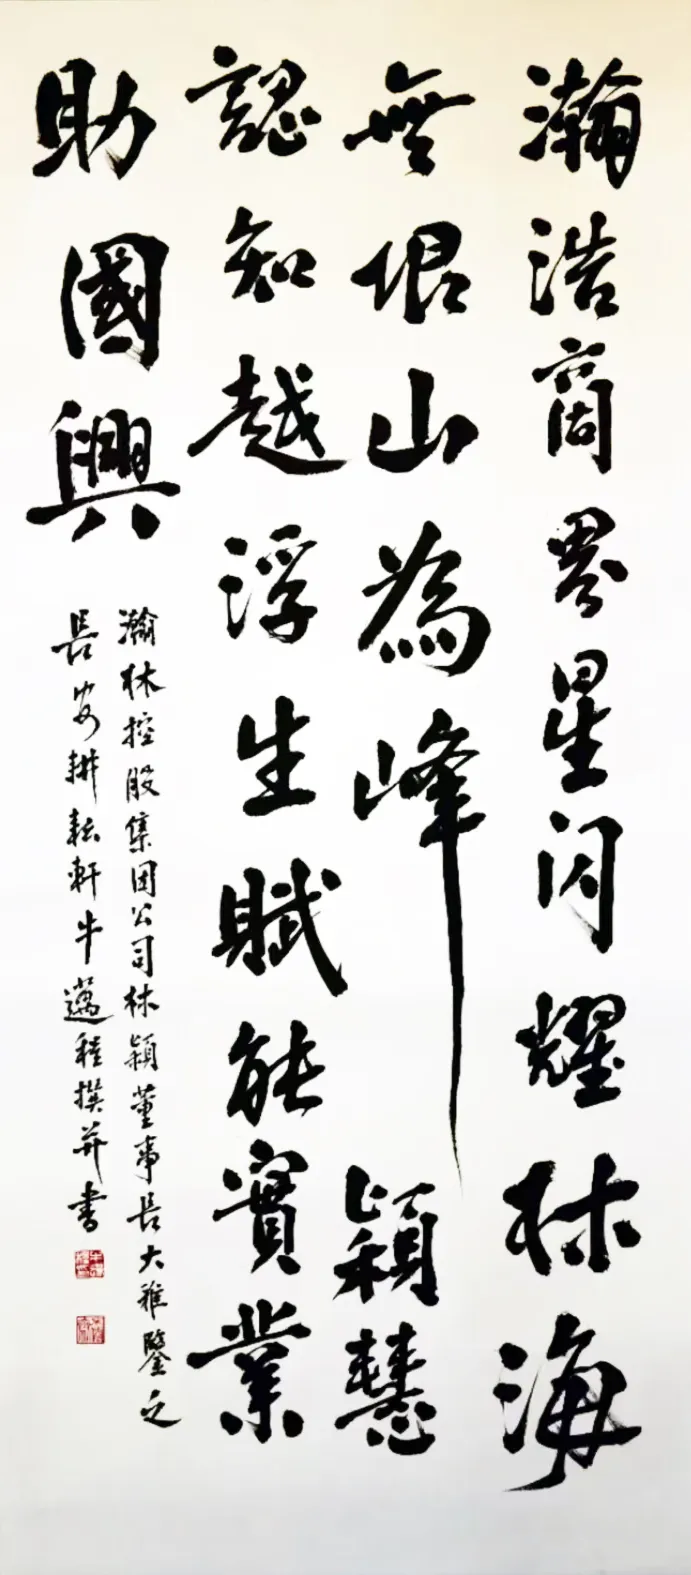 瀚浩商界星闪耀林海
無垠山為峰穎慧
認知越浮生賦能實業
助國興
瀚林控股集团公司林穎董事長大雅鑒之
長安耕耘軒牛邁程撰并書